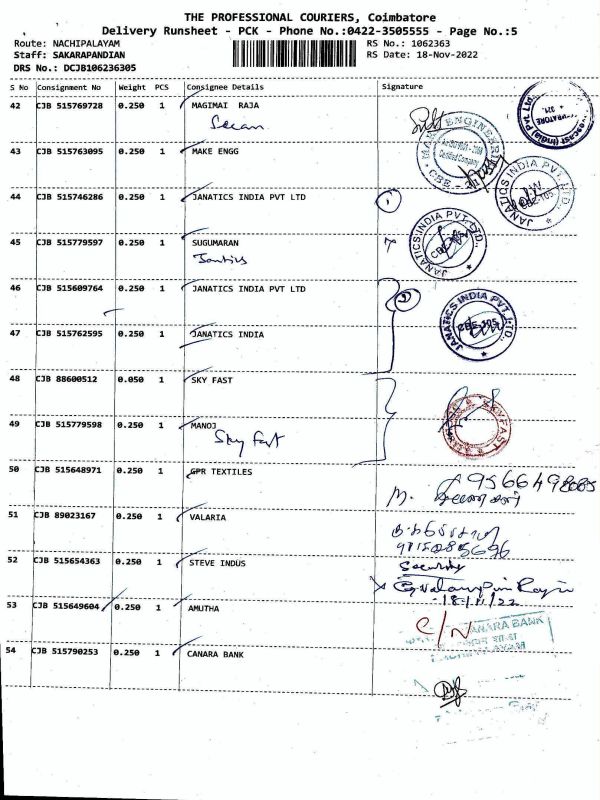 THE PROFESSIONAL COURIERS, Coimbatore
Delivery Runsheet - PCK - Phone No.:0422-3505555 - Page No.:5
Route: NACHIPALAYAM RS No.: 1062363
Staff: SAKARAPANDIAN RS Date: 18-Nov-2022
DRS No.: DCJB106236305
S No Consignment No Weight PCS Consignee Details Signature
42 CJB 515769728 0.250 1 MAGIMAI RAJA
43 CJB 515763095 0.250 1 MAKE ENGG
44 CJB 515746286 0.250 1 JANATICS INDIA PVT LTD
JANATICS INDIA PVT. LTD.,
CBE-105
45 CJB 515779597 0.250 1 SUGUMARAN
JANATICS INDIA PVT. LTD.,
46 CJB 515609764 0.250 1 JANATICS INDIA PVT LTD
JANATICS INDIA PVT. LTD.,
CBE-105
47 CJB 515762595 0.250 1 JANATICS INDIA
48 CJB 88600512 0.050 1 SKY FAST
49 CJB 515779598 0.250 1 MANOJ
Sky fast
SKYFAST
50 CJB 515648971 0.250 1 GPR TEXTILES
51 CJB 89023167 0.250 1 VALARIA
52 CJB 515654363 0.250 1 STEVE INDUS
Security
18/11/22
53 CJB 515649604 0.250 1 AMUTHA
C/N
CANARA BANK
54 CJB 515790253 0.250 1 CANARA BANK